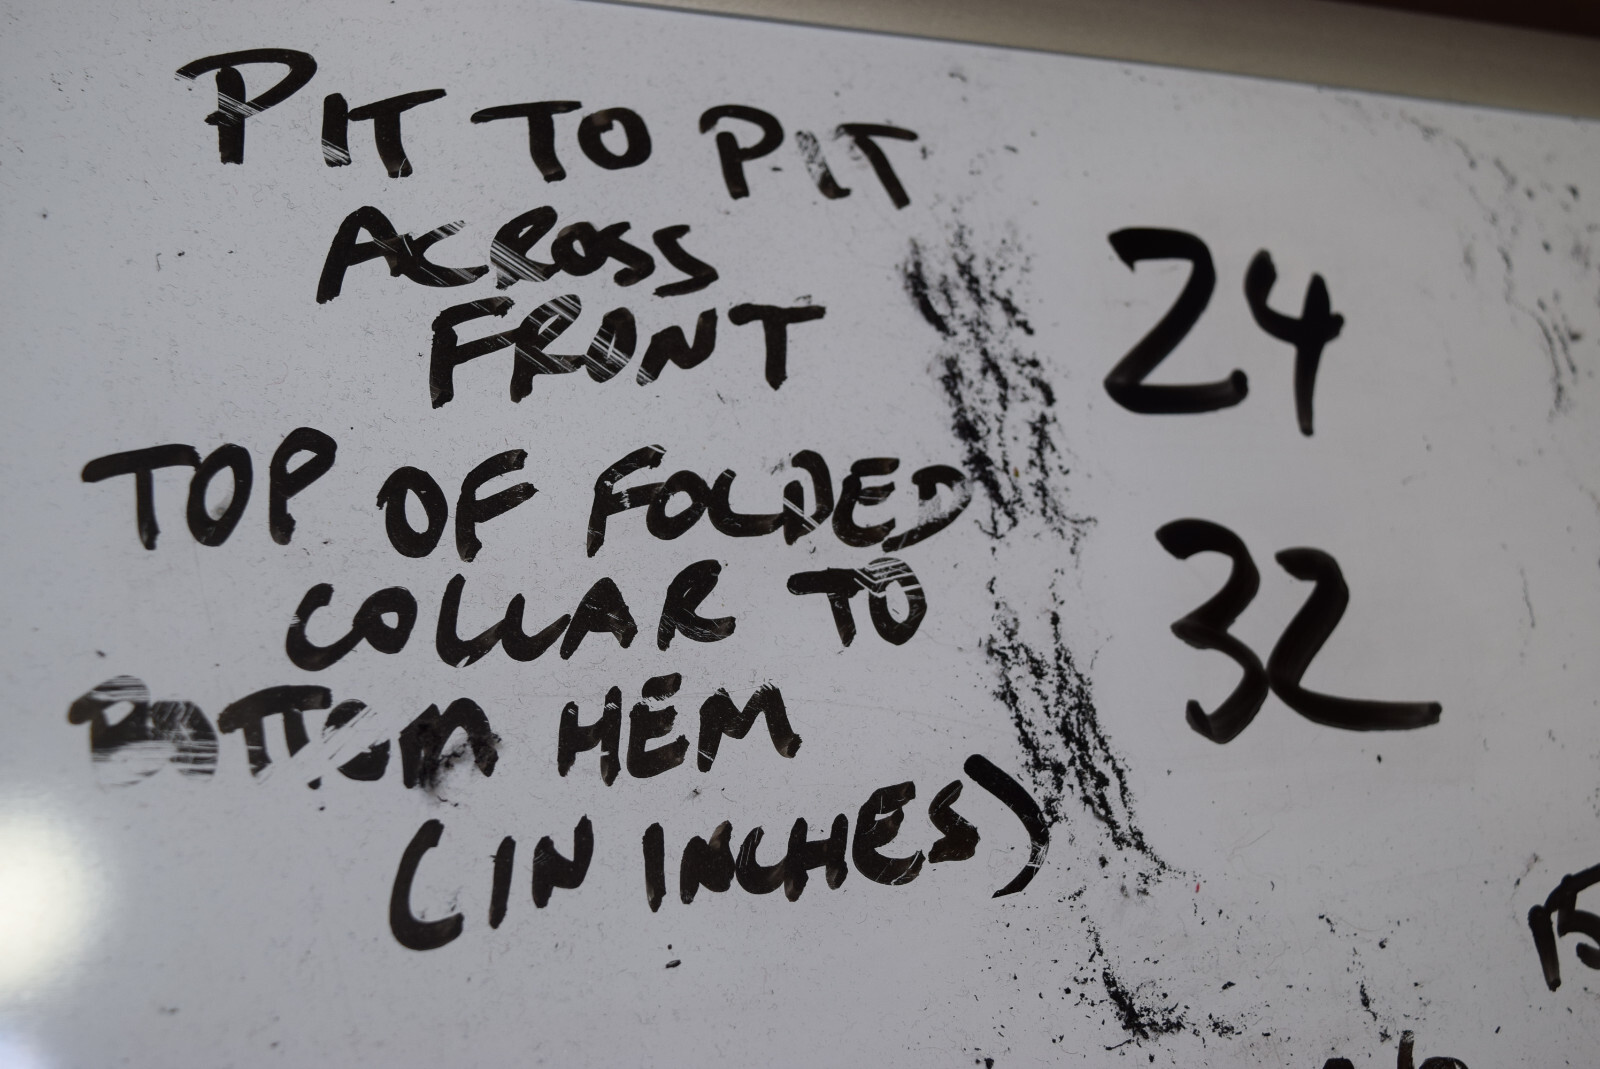 PIT TO PIT
ACROSS
FRONT
24
TOP OF FOLDED
COLLAR TO
BOTTOM HEM
32
(IN INCHES)
15